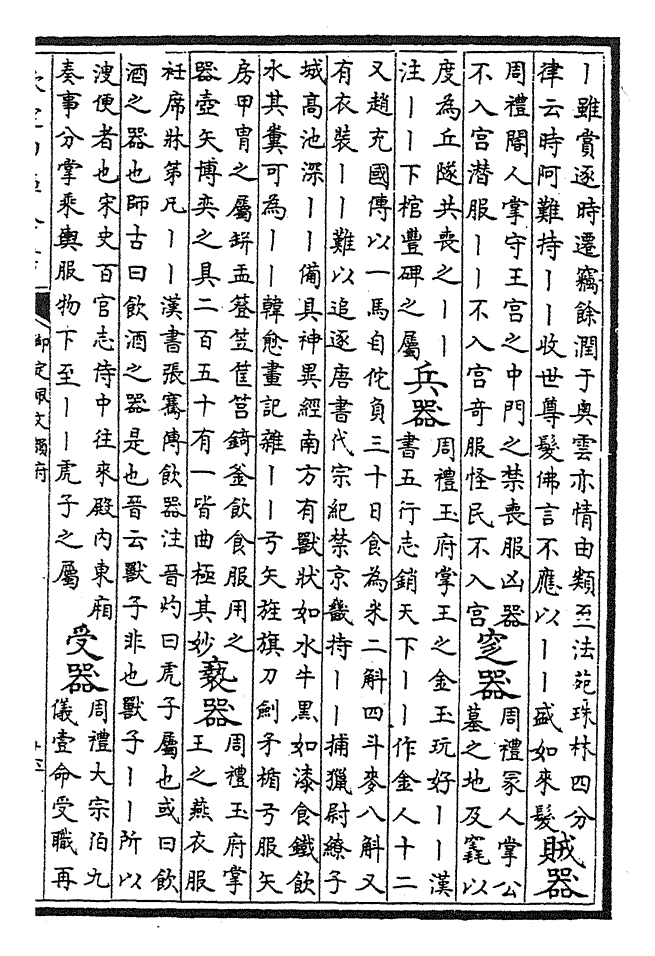 丨雖賞逐時遷竊餘潤于奥雲亦情由類至法苑珠林四分
律云時阿難持丨丨收世尊髮佛言不應以丨丨盛如來髮
賊器
周禮閽人掌守王宫之中門之禁喪服凶器
不入宫潜服丨丨不入宫奇服怪民不入宫
窆器
周禮冢人掌公
墓之地及竁以
度為丘隧共喪之丨丨
注丨丨下棺豐碑之屬
兵器
周禮玉府掌王之金玉玩好丨丨漢
書五行志銷天下丨丨作金人十二
又趙充國傳以一馬自佗負三十日食為米二斛四斗麥八斛又
有衣裝丨丨難以追逐唐書代宗紀禁京畿持丨丨捕獵尉繚子
城高池深丨丨備具神異經南方有獸狀如水牛黑如漆食鐵飲
水其糞可為丨丨韓愈畫記雜丨丨弓矢旌旗刀劍矛楯弓服矢
房甲冑之屬缾盂簦笠筐筥錡釜飲食服用之
器壺矢博奕之具二百五十有一皆曲極其妙
褻器
周禮玉府掌
王之燕衣服
衽席牀第凡丨丨漢書張騫傳飲器注晉灼曰虎子屬也或曰飲
酒之器也師古曰飲酒之器是也晉云獸子非也獸子丨丨所以
溲便者也宋史百官志侍中往來殿内東廂
奏事分掌乘輿服物下至丨丨虎子之屬
受器
周禮大宗泊九
儀壹命受職再
御定佩文韻府